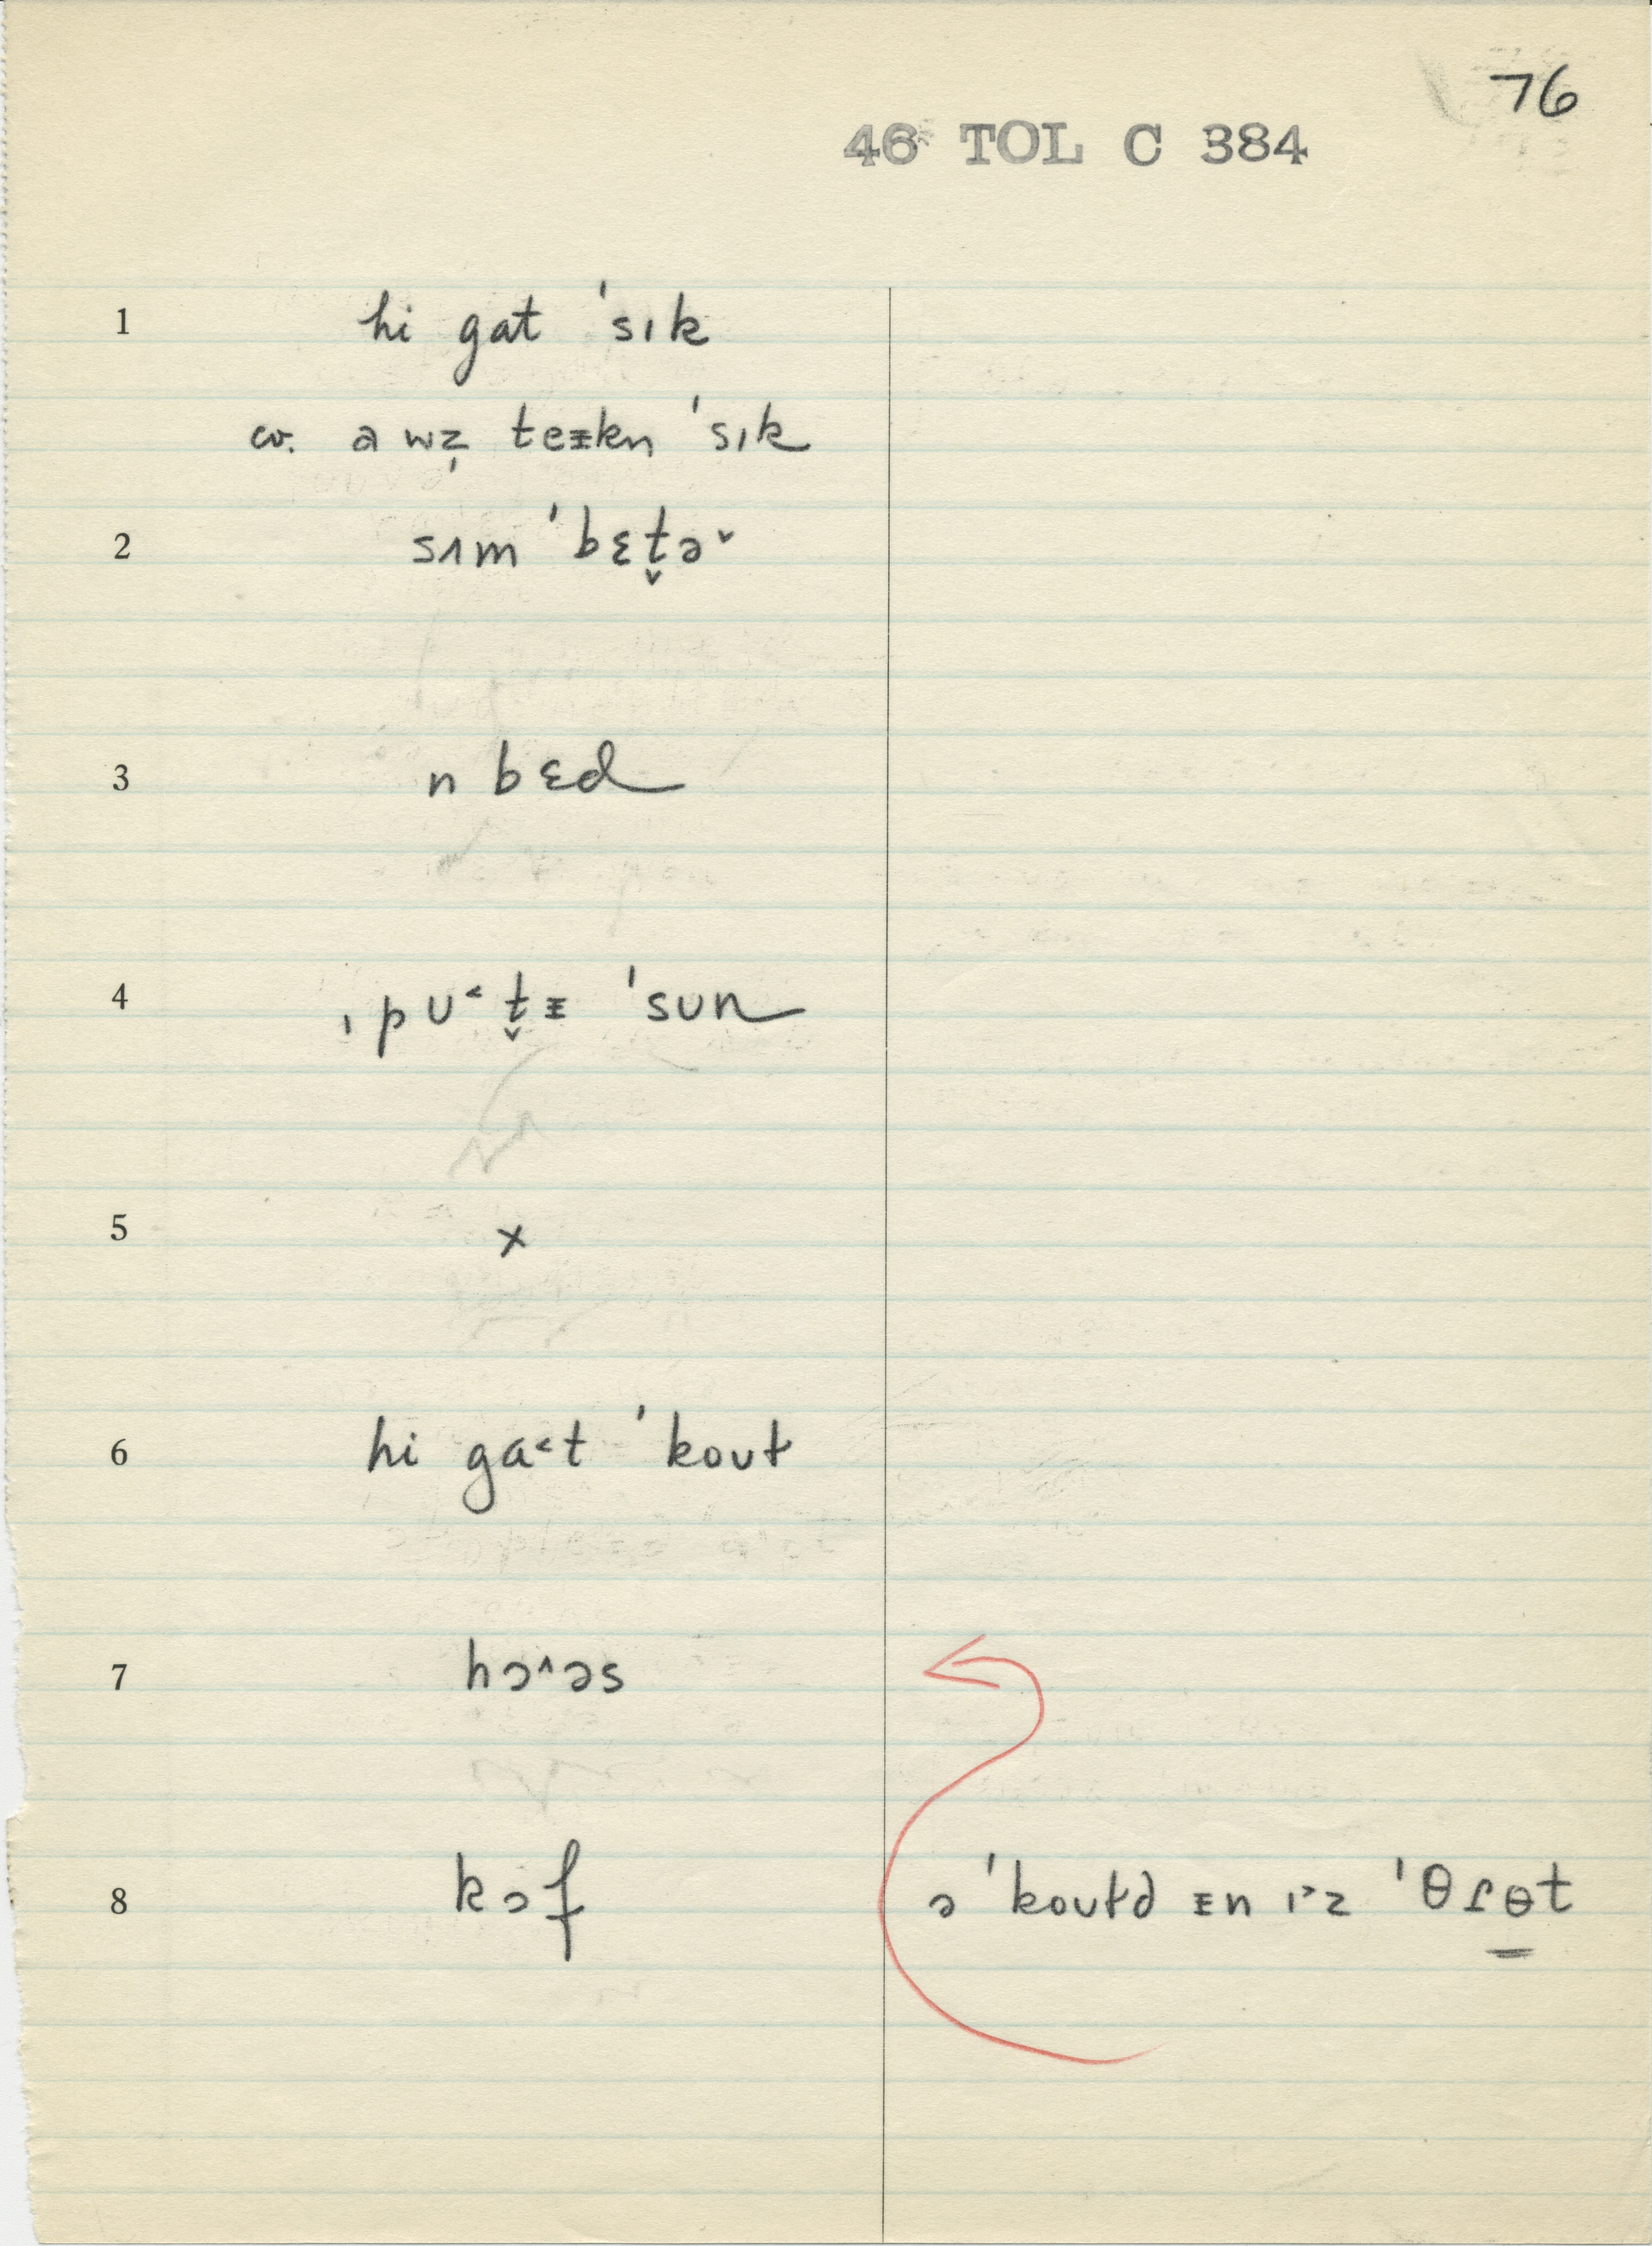 76
46 TOL C 384
1 hi gat ˈsɪk
cv. a wz̩ teᵻkn ˈsɪk
2 sʌm ˈbɛt̬ə˅
3 n bɛd
4 ˌpʊ˂t̬ᵻ ˈsun
5 x
6 hi ga˂t ˈkoʊt
7 hɔ˄əs
8 kɔf ə ˈkoʊtd ᵻn ɪ˃z ˈθɾɵt